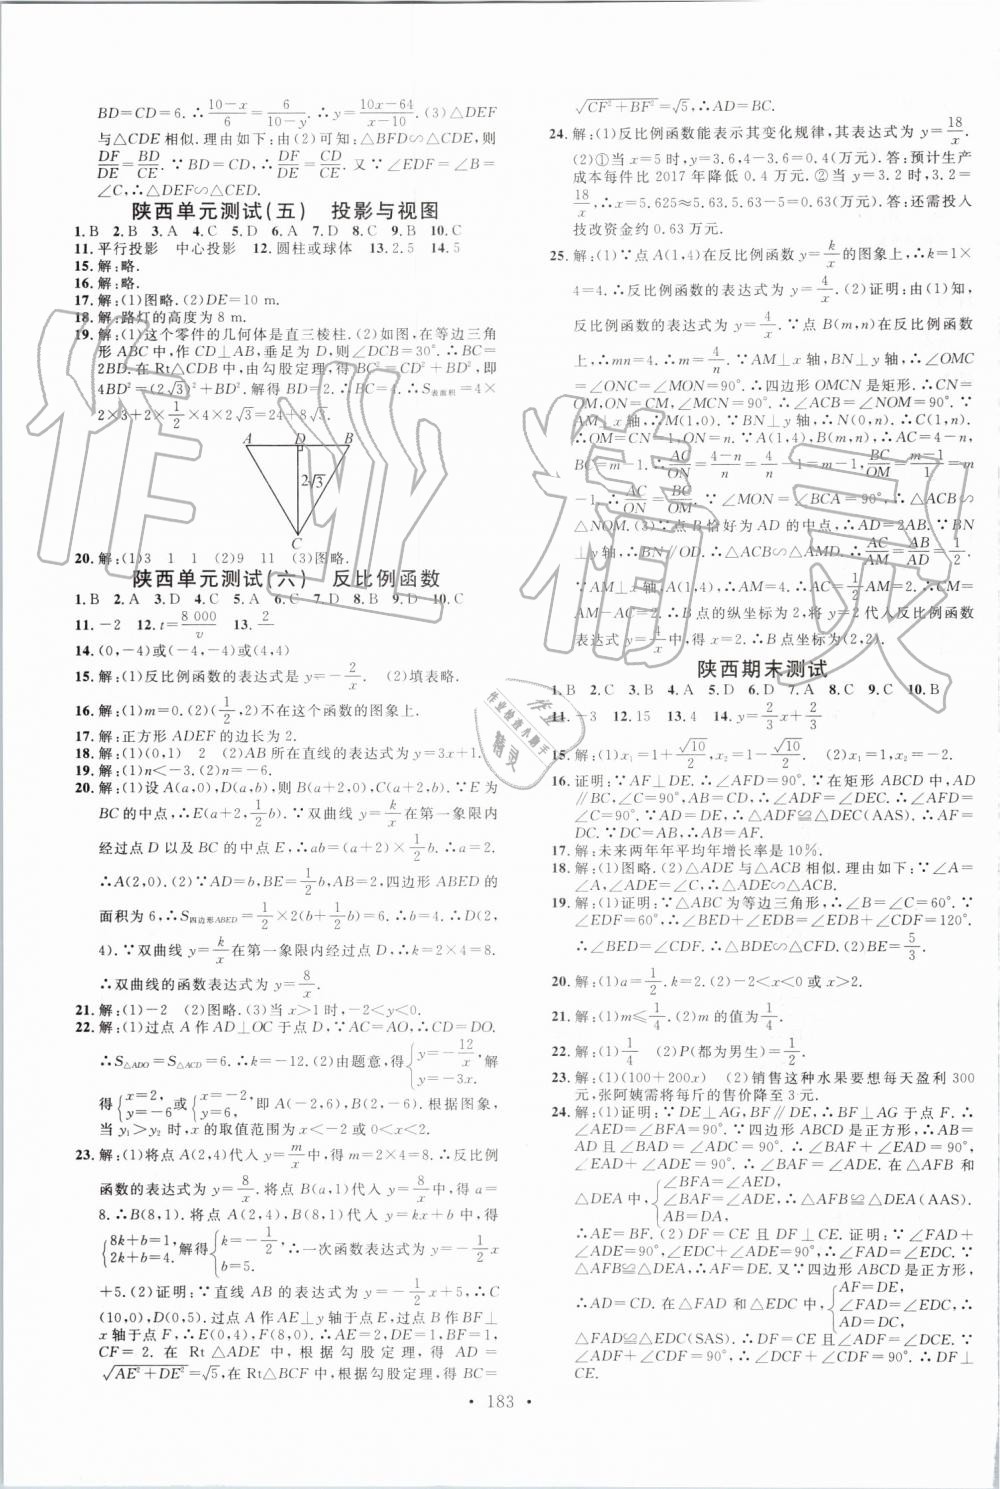 BD=CD=6.∴(10-x)/6=6/(10-y).∴y=(10x-64)/(x-10).(3)△DEF
与△CDE相似.理由如下:由(2)可知:△BFD∽△CED,则
DF/DE=BD/CE.∵BD=CD,∴DF/DE=CD/CE.又∵∠EDF=∠B=
∠C,∴△DEF∽△CED.
陕西单元测试(五) 投影与视图
1.B 2.B 3.A 4.C 5.D 6.A 7.D 8.C 9.B 10.C
11.平行投影 中心投影 12.圆柱或球体 13.2.5 14.5
15.解:略.
16.解:略.
17.解:(1)图略.(2)DE=10 m.
18.解:路灯的高度为8 m.
19.解:(1)这个零件的几何体是直三棱柱.(2)如图,在等边三角
形ABC中,作CD⊥AB,垂足为D,则∠DCB=30°.∴BC=
2BD.在Rt△CDB中,由勾股定理,得BC²=CD²+BD²,即
4BD²=(2√3)²+BD².解得BD=2.∴BC=4.∴S表面积=4×
2×3+2×1/2×4×2√3=24+8√3.
A D B
2√3
C
20.解:(1)3 1 1 (2)9 11 (3)图略.
陕西单元测试(六) 反比例函数
1.B 2.A 3.D 4.C 5.A 6.C 7.D 8.B 9.D 10.C
11.-2 12.t=8 000/v 13.
14.(0,-4)或(-4,-4)或(4,4)
15.解:(1)反比例函数的表达式是y=-2/x.(2)图略.
16.解:(1)m=0.(2)(1/2,2)不在这个函数的图象上.
17.解:正方形ADEF的边长为2.
18.解:(1)(0,1) 2 (2)AB所在直线的表达式为y=3x+1.
19.解:(1)n<-3.(2)n=-6.
20.解:(1)设A(a,0),D(a,b),则B(a+2,0),C(a+2,b).∵E为
BC的中点,∴E(a+2,1/2b).∵双曲线y=k/x在第一象限内
经过点D以及BC的中点E,∴ab=(a+2)·1/2b.∴a=2.
∴A(2,0).(2)∵AD=b,BE=1/2b,AB=2,四边形ABED的
面积为6,∴S四边形ABED=1/2×2(b+1/2b)=6.∴b=4.∴D(2,
4).∵双曲线y=k/x在第一象限内经过点D,∴k=2×4=8.
∴双曲线的函数表达式为y=8/x.
21.解:(1)-2 (2)图略.(3)当x>1时,-2<y<0.
22.解:(1)过点A作AD⊥OC于点D,∵AC=AO,∴CD=DO.
∴S△ADO=S△ACD=6.∴k=-12.(2)由题意,得{y=-12/x, y=-3x.解
得{x=2, y=-6或{x=-2, y=6.∴A(-2,6),B(2,-6).根据图象,
当y₁>y₂时,x的取值范围为x<-2或0<x<2.
23.解:(1)将点A(2,4)代入y=m/x中,得m=2×4=8.∴反比例
函数的表达式为y=8/x.将点B(a,1)代入y=8/x中,得a=
8.∴B(8,1).将点A(2,4),B(8,1)代入y=kx+b中,得
{8k+b=1, 2k+b=4.解得{k=-1/2, b=5.∴一次函数表达式为y=-1/2x
+5.(2)证明:∵直线AB的表达式为y=-1/2x+5,∴C
(10,0),D(0,5).过点A作AE⊥y轴于点E,过点B作BF⊥
x轴于点F,∴E(0,4),F(8,0).∴AE=2,DE=1,BF=1,
CF=2.在Rt△ADE中,根据勾股定理,得AD=
√(AE²+DE²)=√5,在Rt△BCF中,根据勾股定理,得BC=
√(CF²+BF²)=√5,∴AD=BC.
24.解:(1)反比例函数能表示其变化规律,其表达式为y=18/x.
(2)①当x=5时,y=3.6,4-3.6=0.4(万元).答:预计生产
成本每件比2017年降低0.4万元.②当y=3.2时,3.2=
18/x,∴x=5.625≈5.63.5.63-5=0.63(万元).答:还需投入
技改资金约0.63万元.
25.解:(1)∵点A(1,4)在反比例函数y=k/x的图象上,∴k=1×
4=4.∴反比例函数的表达式为y=4/x.(2)证明:由(1)知,
反比例函数的表达式为y=4/x.∵点B(m,n)在反比例函数
上,∴mn=4.∵AM⊥x轴,BN⊥y轴,∴∠OMC
=∠ONC=∠MON=90°.∴四边形OMCN是矩形.∴CN=
OM,ON=CM,∠MCN=90°.∴∠ACB=∠NOM=90°.∵
AM⊥x轴,∴M(1,0).∵BN⊥y轴,∴N(0,n).∴C(1,n).
∴OM=CN=1,ON=n.∵A(1,4),B(m,n),∴AC=4-n,
BC=m-1.∴AC/ON=(4-n)/n=4/n-1=m-1.BC/OM=(m-1)/1=m
-1.∴AC/ON=BC/OM.∵∠MON=∠BCA=90°,∴△ACB∽
△NOM.(3)∵点B恰好为AD的中点,∴AD=2AB.∵BN
⊥y轴,∴∥x轴.∴△ACB∽△AMD.∴AC/AM=AB/AD=
1/2.∵AM⊥x轴,A(1,4),∴AM=4.∴AC=1/2AM=2.∴CM=
AM-AC=2.∴B点的纵坐标为2,将y=2代入反比例函数
表达式y=4/x中,得x=2.∴B点坐标为(2,2).
陕西期末测试
1.B 2.C 3.C 4.A 5.D 6.D 7.A 8.C 9.C 10.B
11.-3 12.15 13.4 14.y=2/3x+2/3
15.解:(1)x₁=1+√10/2,x₂=1-√10/2. (2)x₁=1,x₂=-2.
16.证明:∵AF⊥DE.∴∠AFD=90°.∵在矩形ABCD中,AD
∥BC,∠C=90°,AB=CD,∴∠ADF=∠DEC.∴∠AFD=
∠C=90°.∵AD=DE,∴△ADF≌△DEC(AAS).∴AF=
DC.∵DC=AB,∴AF=AB.
17.解:未来两年年平均年增长率是10%.
18.解:(1)图略.(2)△ADE与△ACB相似.理由如下:∵∠A=
∠A,∠ADE=∠C,∴△ADE∽△ACB.
19.解:(1)证明:∵△ABC为等边三角形,∴∠B=∠C=60°.∵
∠EDF=60°,∴∠BED+∠EDB=∠EDB+∠CDF=120°.
∴∠BED=∠CDF.∴△BDE∽△CFD.(2)BE=5/3.
20.解:(1)a=1/2.k=2.(2)-2<x<0或x>2.
21.解:(1)m≤1/4.(2)m的值为1/4.
22.解:(1)1/4 (2)P(都为男生)=1/2.
23.解:(1)(100+200x) (2)销售这种水果要想每天盈利300
元,张阿姨需将每斤的售价降至3元.
24.解:(1)证明:∵DE⊥AG,BF∥DE,∴BF⊥AG于点F.∴
∠AED=∠BFA=90°.∵四边形ABCD是正方形,∴AB=
AD且∠BAD=∠ADC=90°.∴∠BAF+∠EAD=90°.∵
∠EAD+∠ADE=90°.∴∠BAF=∠ADE.在△AFB和
△DEA中,{∠BFA=∠AED, ∠BAF=∠ADE, BA=DA,∴△AFB≌△DEA(AAS).
∴AE=BF.(2)DF=CE且DF⊥CE.证明:∵∠FAD+
∠ADE=90°,∠EDC+∠ADE=90°,∴∠FAD=∠EDC.∵
△AFB≌△DEA,∴AF=DE.又∵四边形ABCD是正方形,
∴AD=CD.在△FAD和△EDC中,{AF=DE, ∠FAD=∠EDC, AD=DC,∴
△FAD≌△EDC(SAS).∴DF=CE且∠ADF=∠DCE.
∵∠ADF+∠CDF=90°,∴∠DCE+∠CDF=90°.∴DF⊥
CE.
· 183 ·